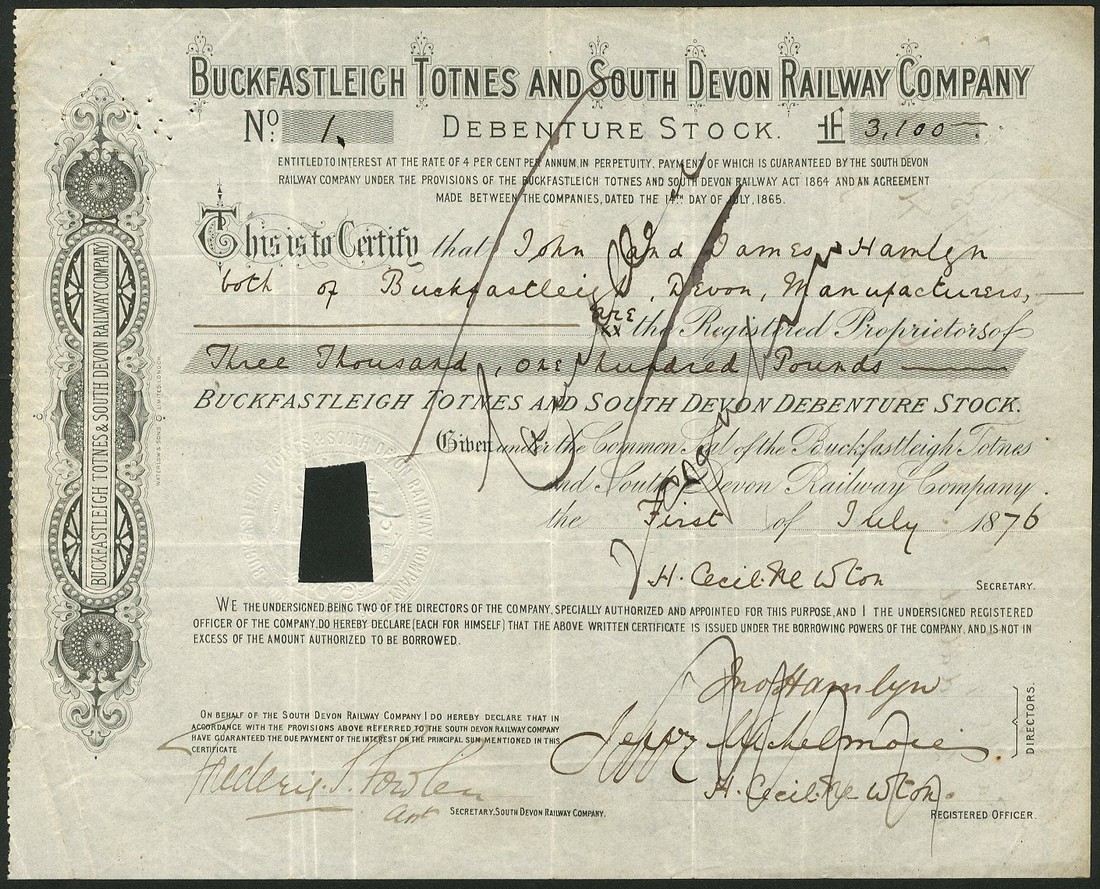 BUCKFASTLEIGH TOTNES AND SOUTH DEVON RAILWAY COMPANY
No. 1. DEBENTURE STOCK. £ 3,100
ENTITLED TO INTEREST AT THE RATE OF 4 PER CENT PER ANNUM, IN PERPETUITY, PAYMENT OF WHICH IS GUARANTEED BY THE SOUTH DEVON
RAILWAY COMPANY UNDER THE PROVISIONS OF THE BUCKFASTLEIGH TOTNES AND SOUTH DEVON RAILWAY ACT 1864 AND AN AGREEMENT
MADE BETWEEN THE COMPANIES, DATED THE 14TH DAY OF JULY, 1865.
This is to Certify that John and James Hamlyn
both of Buckfastleigh, Devon, Manufacturers,
are the Registered Proprietors of
Three Thousand, one hundred Pounds
BUCKFASTLEIGH TOTNES AND SOUTH DEVON DEBENTURE STOCK.
Given under the Common Seal of the Buckfastleigh Totnes
and South Devon Railway Company.
the First of July 1876
H. Cecil Newton
SECRETARY.
WE THE UNDERSIGNED, BEING TWO OF THE DIRECTORS OF THE COMPANY, SPECIALLY AUTHORIZED AND APPOINTED FOR THIS PURPOSE, AND I THE UNDERSIGNED REGISTERED
OFFICER OF THE COMPANY, DO HEREBY DECLARE (EACH FOR HIMSELF) THAT THE ABOVE WRITTEN CERTIFICATE IS ISSUED UNDER THE BORROWING POWERS OF THE COMPANY, AND IS NOT IN
EXCESS OF THE AMOUNT AUTHORIZED TO BE BORROWED.
Jno Hamlyn
Jeffry Michelmore
DIRECTORS.
H. Cecil Newton.
REGISTERED OFFICER.
ON BEHALF OF THE SOUTH DEVON RAILWAY COMPANY I DO HEREBY DECLARE THAT IN
ACCORDANCE WITH THE PROVISIONS ABOVE REFERRED TO THE SOUTH DEVON RAILWAY COMPANY
HAVE GUARANTEED THE DUE PAYMENT OF THE INTEREST ON THE PRINCIPAL SUM MENTIONED IN THIS
CERTIFICATE
SECRETARY, SOUTH DEVON RAILWAY COMPANY.
BUCKFASTLEIGH TOTNES & SOUTH DEVON RAILWAY COMPANY
WATERLOW & SONS LIMITED LONDON